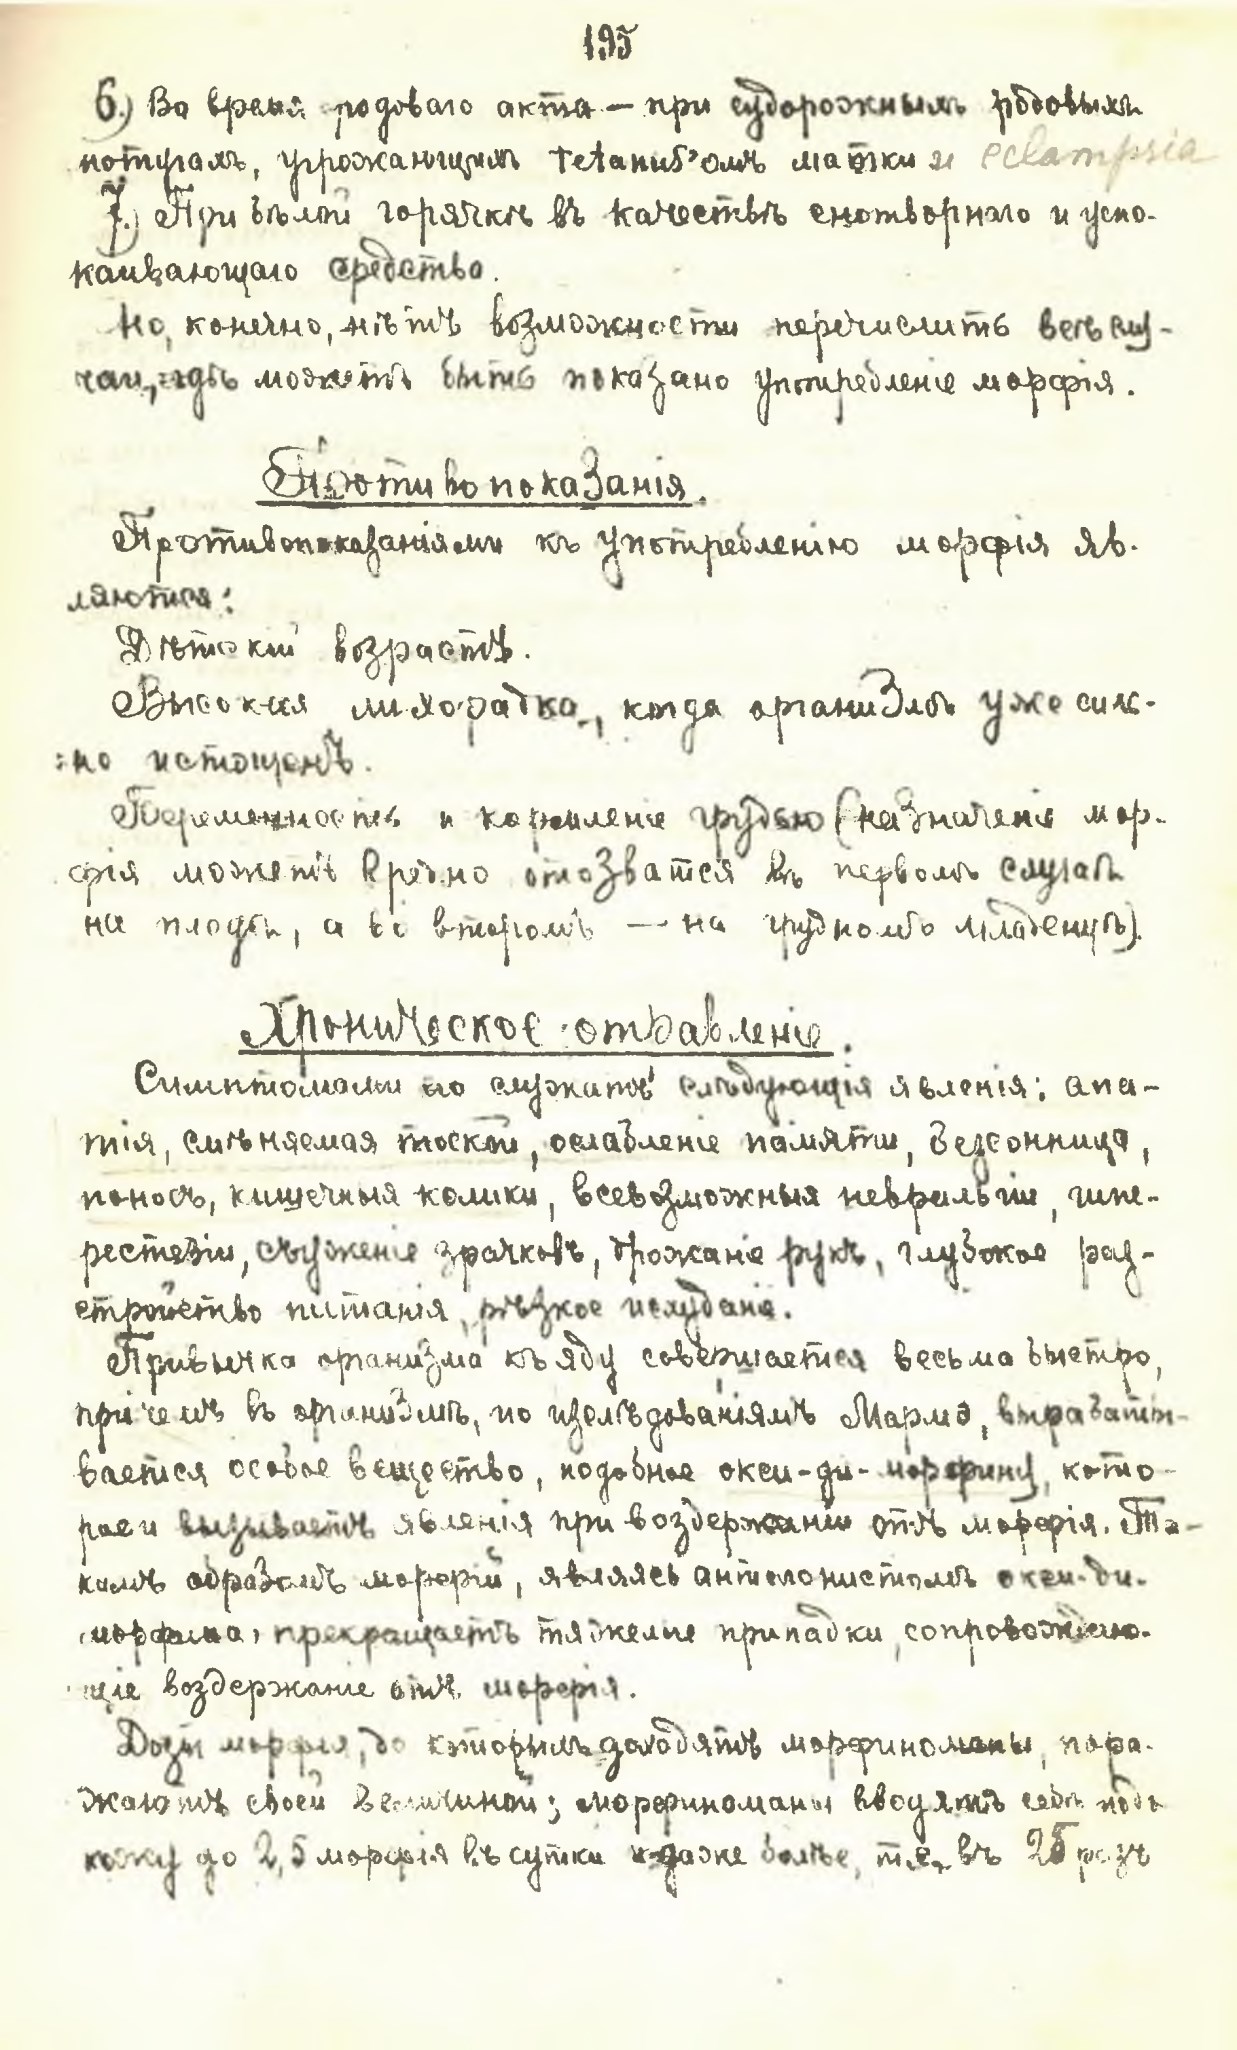 195
6.) Во время родоваго акта — при судорожныхъ родовыхъ
потугахъ, угрожающихъ tetanus'омъ матки и eclampsia
7.) При бѣлой горячкѣ въ качествѣ снотворнаго и успо-
каивающаго средства.
Но, конечно, нѣтъ возможности перечислить всѣ слу-
чаи, гдѣ можетъ быть показано употребленіе морфія.
Противопоказанія.
Противопоказаніями къ употребленію морфія яв-
ляются:
Дѣтскій возрастъ.
Высокая лихорадка, когда организмъ уже силь-
но истощенъ.
Беременность и кормленіе грудью (назначеніе мор-
фія можетъ вредно отозватся въ первомъ случаѣ
на плодѣ, а во второмъ — на грудномъ младенцѣ).
Хроническое отравленіе.
Симптомами го служатъ слѣдующія явленія: апа-
тія, смѣняемая тоской, ослабленіе памяти, безсонница,
поносъ, кишечныя колики, всевозможныя невральгіи, гипе-
рестезіи, съуженіе зрачковъ, дрожаніе рукъ, глубокое раз-
стройство питанія, рѣзкое исхуданіе.
Привычка организма къ яду совершается весьма быстро,
причемъ въ организмѣ, по изслѣдованіямъ Мармэ, выработы-
вается особое вещество, подобное окси-ди-морфину, кото-
рое и вызываетъ явленія при воздержаніи отъ морфія. Та-
кимъ образомъ морфій, являясь антагонистомъ окси-ди-
морфина, прекращаетъ тяжелые припадки, сопровождаю-
щіе воздержаніе отъ морфія.
Дозы морфія, до которыхъ доходятъ морфиноманы, пора-
жаютъ своей величиной; морфиноманы вводятъ себѣ подъ
кожу до 2,5 морфія въ сутки и даже болѣе, т.е. въ 25 разъ